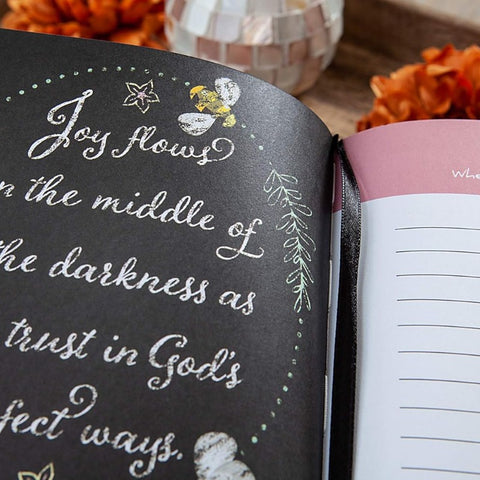 Joy flows
n the middle of
the darkness as
trust in God's
fect ways.
Whe